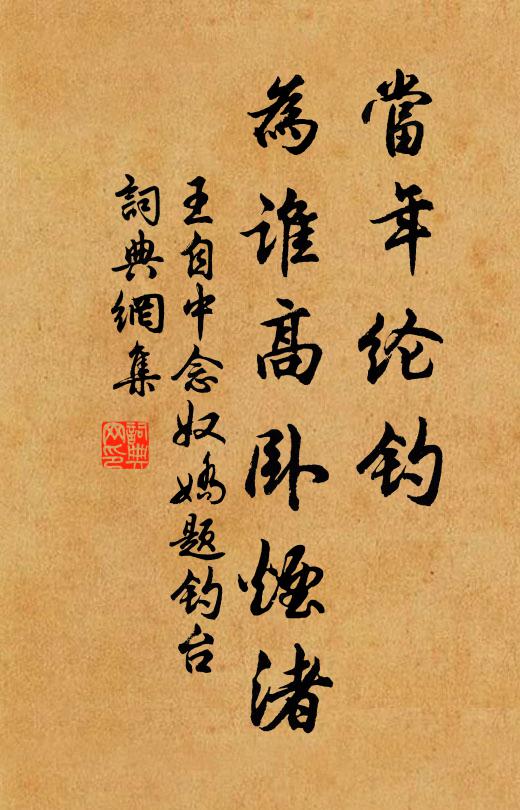 當年纶钓
為誰高卧煙渚
王自中念奴嬌題钓台
詞典網集
詞典网印